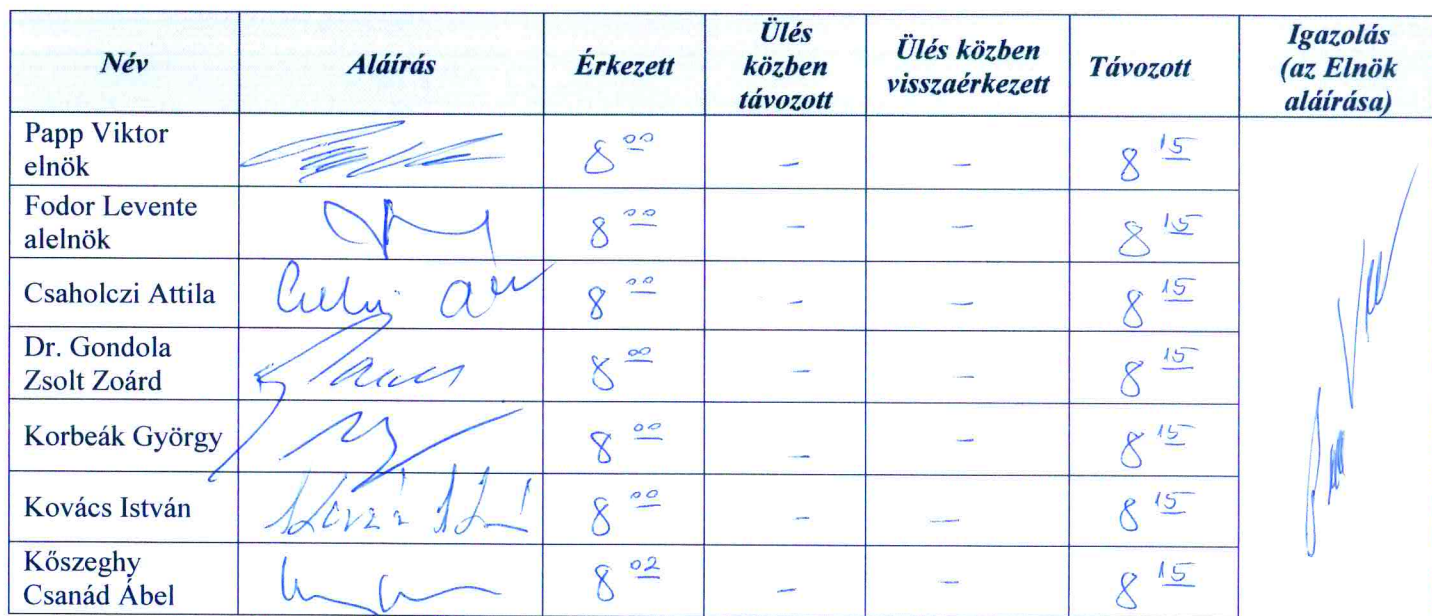 Név Aláírás Érkezett Ülés közben távozott Ülés közben visszaérkezett Távozott Igazolás (az Elnök aláírása)
Papp Viktor elnök 8 00 - - 8 15
Fodor Levente alelnök 8 00 - - 8 15
Csaholczi Attila 8 00 - - 8 15
Dr. Gondola Zsolt Zoárd 8 00 - - 8 15
Korbeák György 8 00 - - 8 15
Kovács István 8 00 - - 8 15
Kőszeghy Csanád Ábel 8 02 - - 8 15